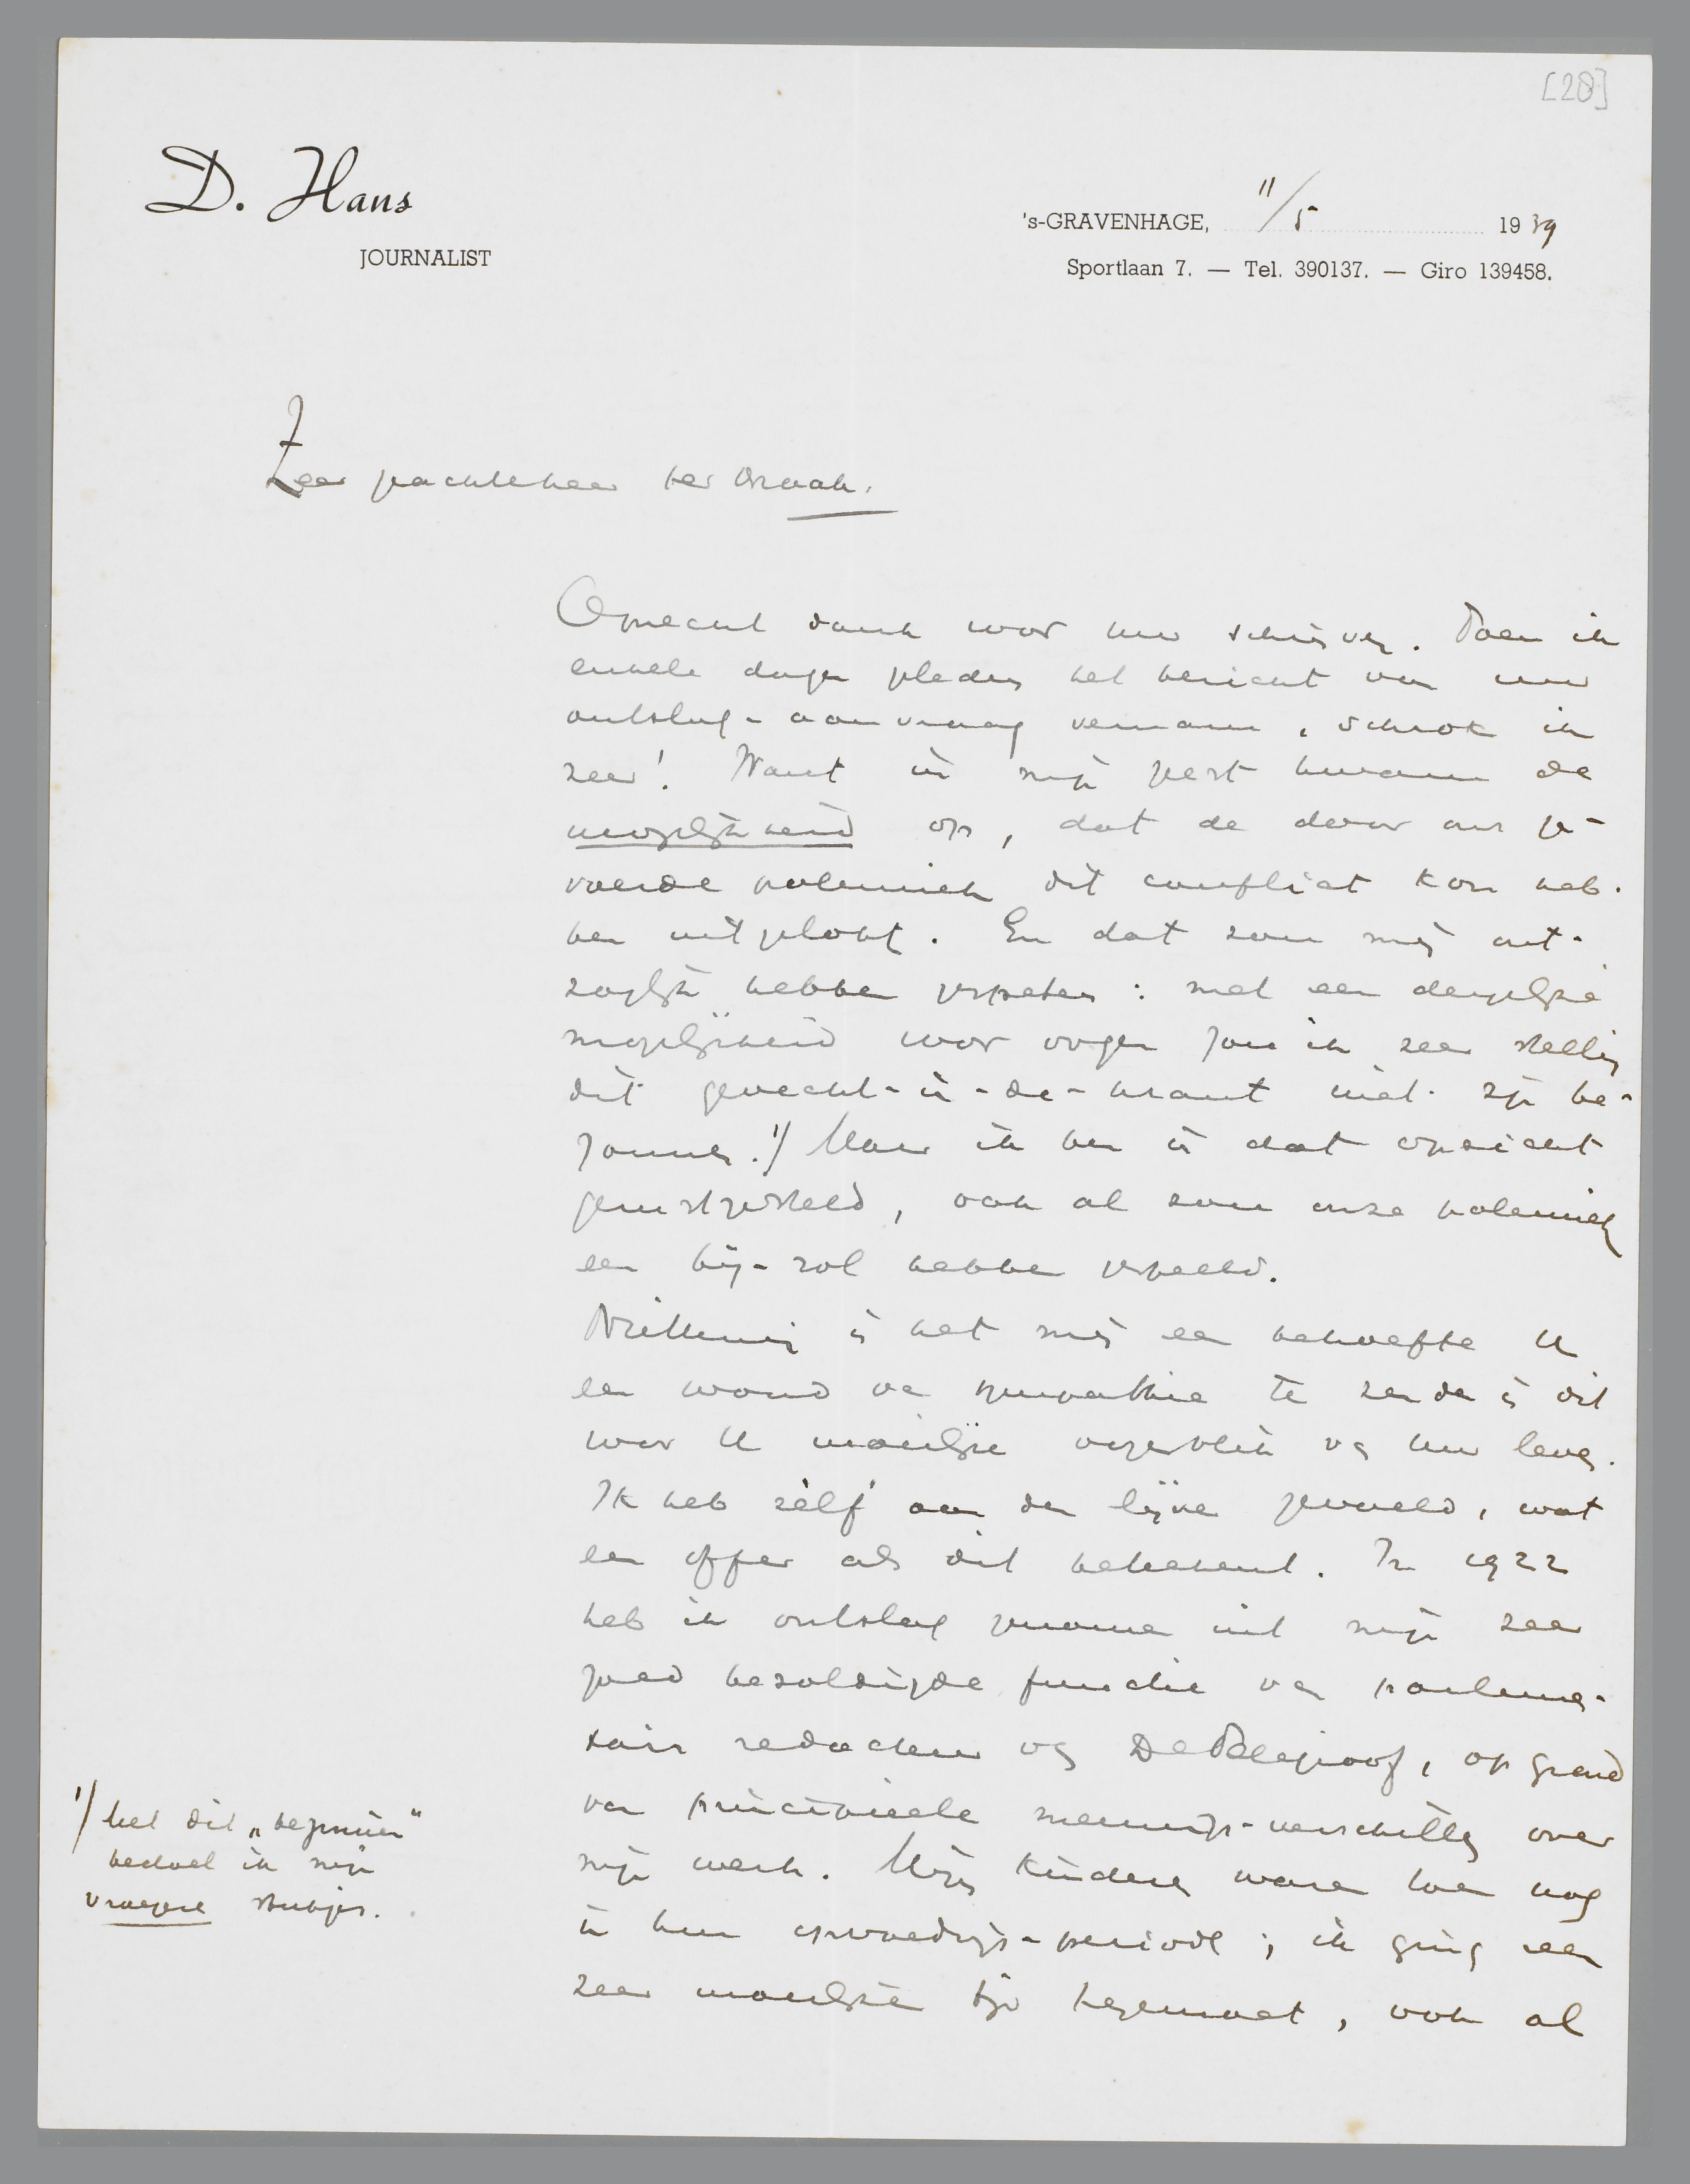 [28]
D. Hans
JOURNALIST
's-GRAVENHAGE, 11/5 1939
Sportlaan 7. — Tel. 390137. — Giro 139458.
Zeer geachte heer ter Braak,
Oprecht dank voor uw schrijven. Toen ik
enkele dagen geleden het bericht van uw
ontslag-aanvraag vernam, schrok ik
zeer! Want in mijn geest kwam de
mogelijkheid op, dat de door ons ge-
voerde polemiek dit conflict kon heb-
ben uitgelokt. En dat zou mij ont-
zaglijk hebben gespeten: met een dergelijke
mogelijkheid voor oogen zou ik zeer stellig
dit gevecht-in-de-krant niet zijn be-
gonnen. 1) Maar ik ben in dat opzicht
gerustgesteld, ook al zou onze polemiek
een bij-rol hebben gespeeld.
Niettemin is het mij een behoefte U
een woord van sympathie te zenden in dit
voor U moeilijke oogenblik van Uw leven.
Ik heb zèlf aan den lijve gevoeld, wat
een offer als dit beteekent. In 1922
heb ik ontslag genomen uit mijn zeer
goed bezoldigde functie van parlemen-
tair redacteur van De Telegraaf, op grond
van principieele meenings-verschillen over
mijn werk. Mijn kinderen waren toen nog
in hun opvoedings-periode; ik ging een
zeer moeilijken tijd tegemoet, ook al
1) Met dit „beginnen"
bedoel ik mijn
vroegere stukjes.